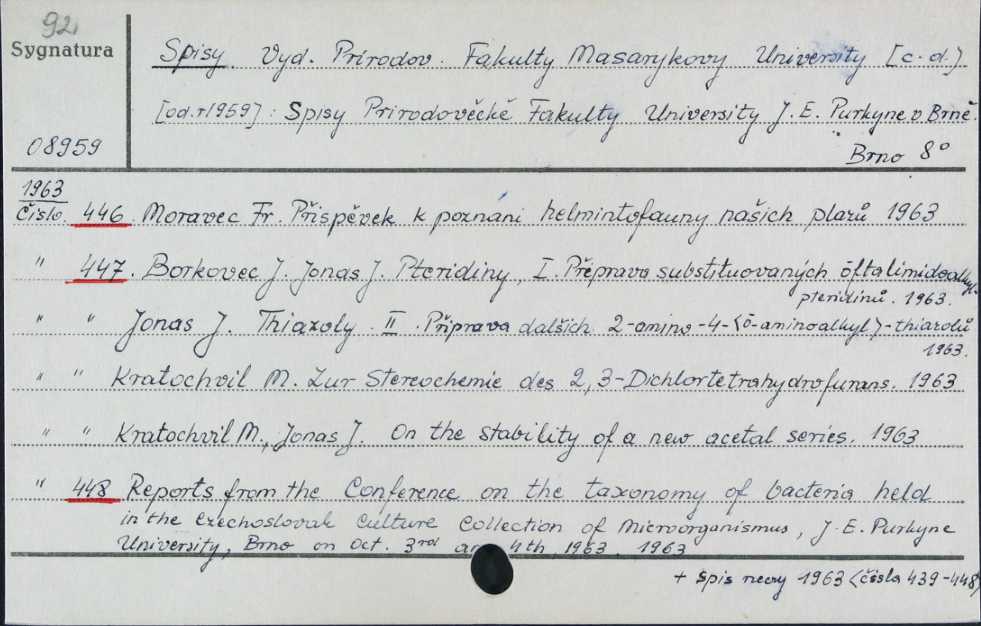 92
Sygnatura
08959
Spisy Vyd. Přírodov. Fakulty Masarykovy University [c.d.]
[od.r1959] : Spisy Prirodověckě Fakulty University J. E. Purkyne v Brně.
Brno 8°
1963
Čislo. 446. Moravec Fr. Přispěvek k poznani helmintofauny našich plazů 1963
" 447. Borkovec J. Jonas J. Pteridiny, I. Přeprava substituovaných
pteridinů. 1963.
" " Jonas J. Thiazoly. II. Připrava dalšich 2-amino-4-(ō-aminoalkyl)-thiazolů
1963.
" " Kratochvil M. Zur Stereochemie des 2,3-Dichlortetrahydrofurans. 1963
" " Kratochvil M., Jonas J. On the stability of a new acetal series. 1963
" 448 Reports from the Conference on the taxonomy of bacteria held
in the Czechoslovak Culture Collection of Microorganismus, J. E. Purkyne
University, Brno on Oct. 3rd and 4th 1963. 1963
+ Spis 1963 (čisla 439-448)